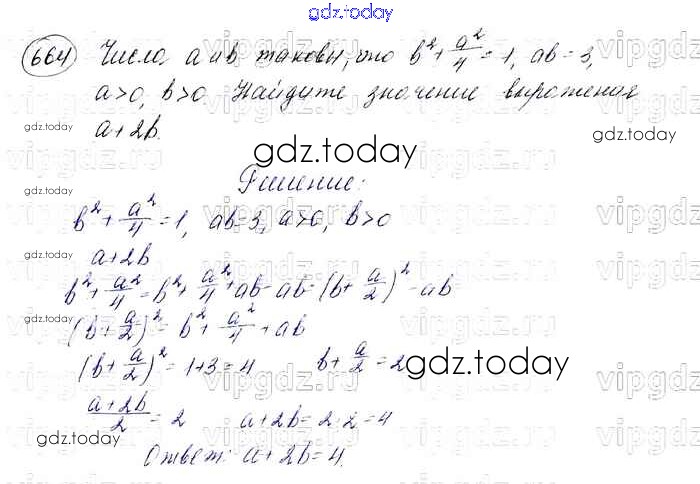 gdz.today
664 Числа a и b таковы, что b² + a²/4 = 1, ab = 3,
a>0, b>0. Найдите значение выражения
gdz.today
a+2b.
gdz.today
gdz.today
Решение:
b² + a²/4 = 1, ab=3, a>0, b>0
a+2b
b² + a²/4 = b² + a²/4 + ab - ab = (b + a/2)² - ab
(b + a/2)² = b² + a²/4 + ab
(b + a/2)² = 1+3=4 b + a/2 = 2
gdz.today
(a+2b)/2 = 2 a+2b = 2·2=4
gdz.today
Ответ: a+2b=4.
vipgdz
vipgdz.ru